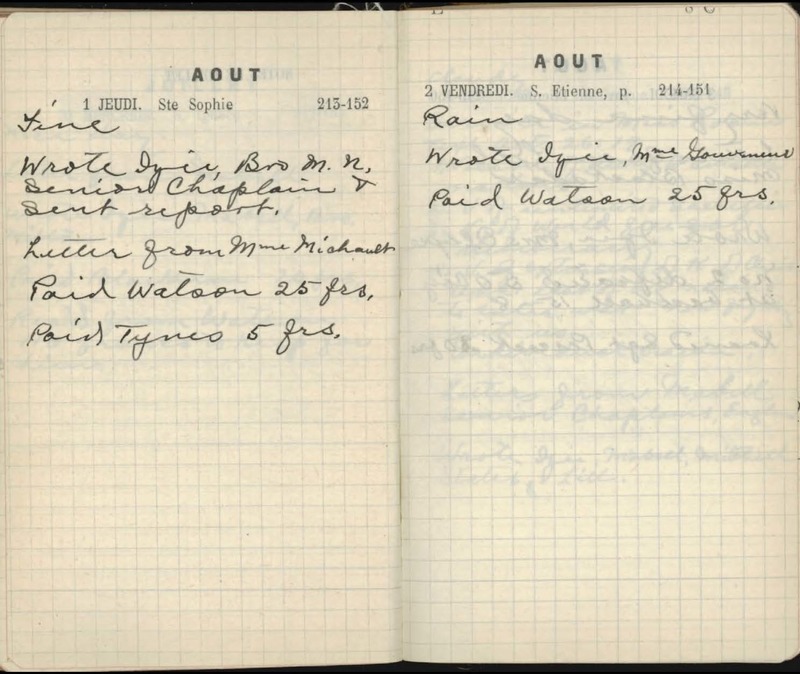 AOUT
1 JEUDI. Ste Sophie 213-152
Fine
Wrote Izie, Bro M. N.
Senior Chaplain &
sent report.
Letter from Mme Michault
Paid Watson 25 frs.
Paid Tynes 5 frs.
AOUT
2 VENDREDI. S. Etienne, p. 214-151
Rain
Wrote Izie, Mme Gouvenend
Paid Watson 25 frs.